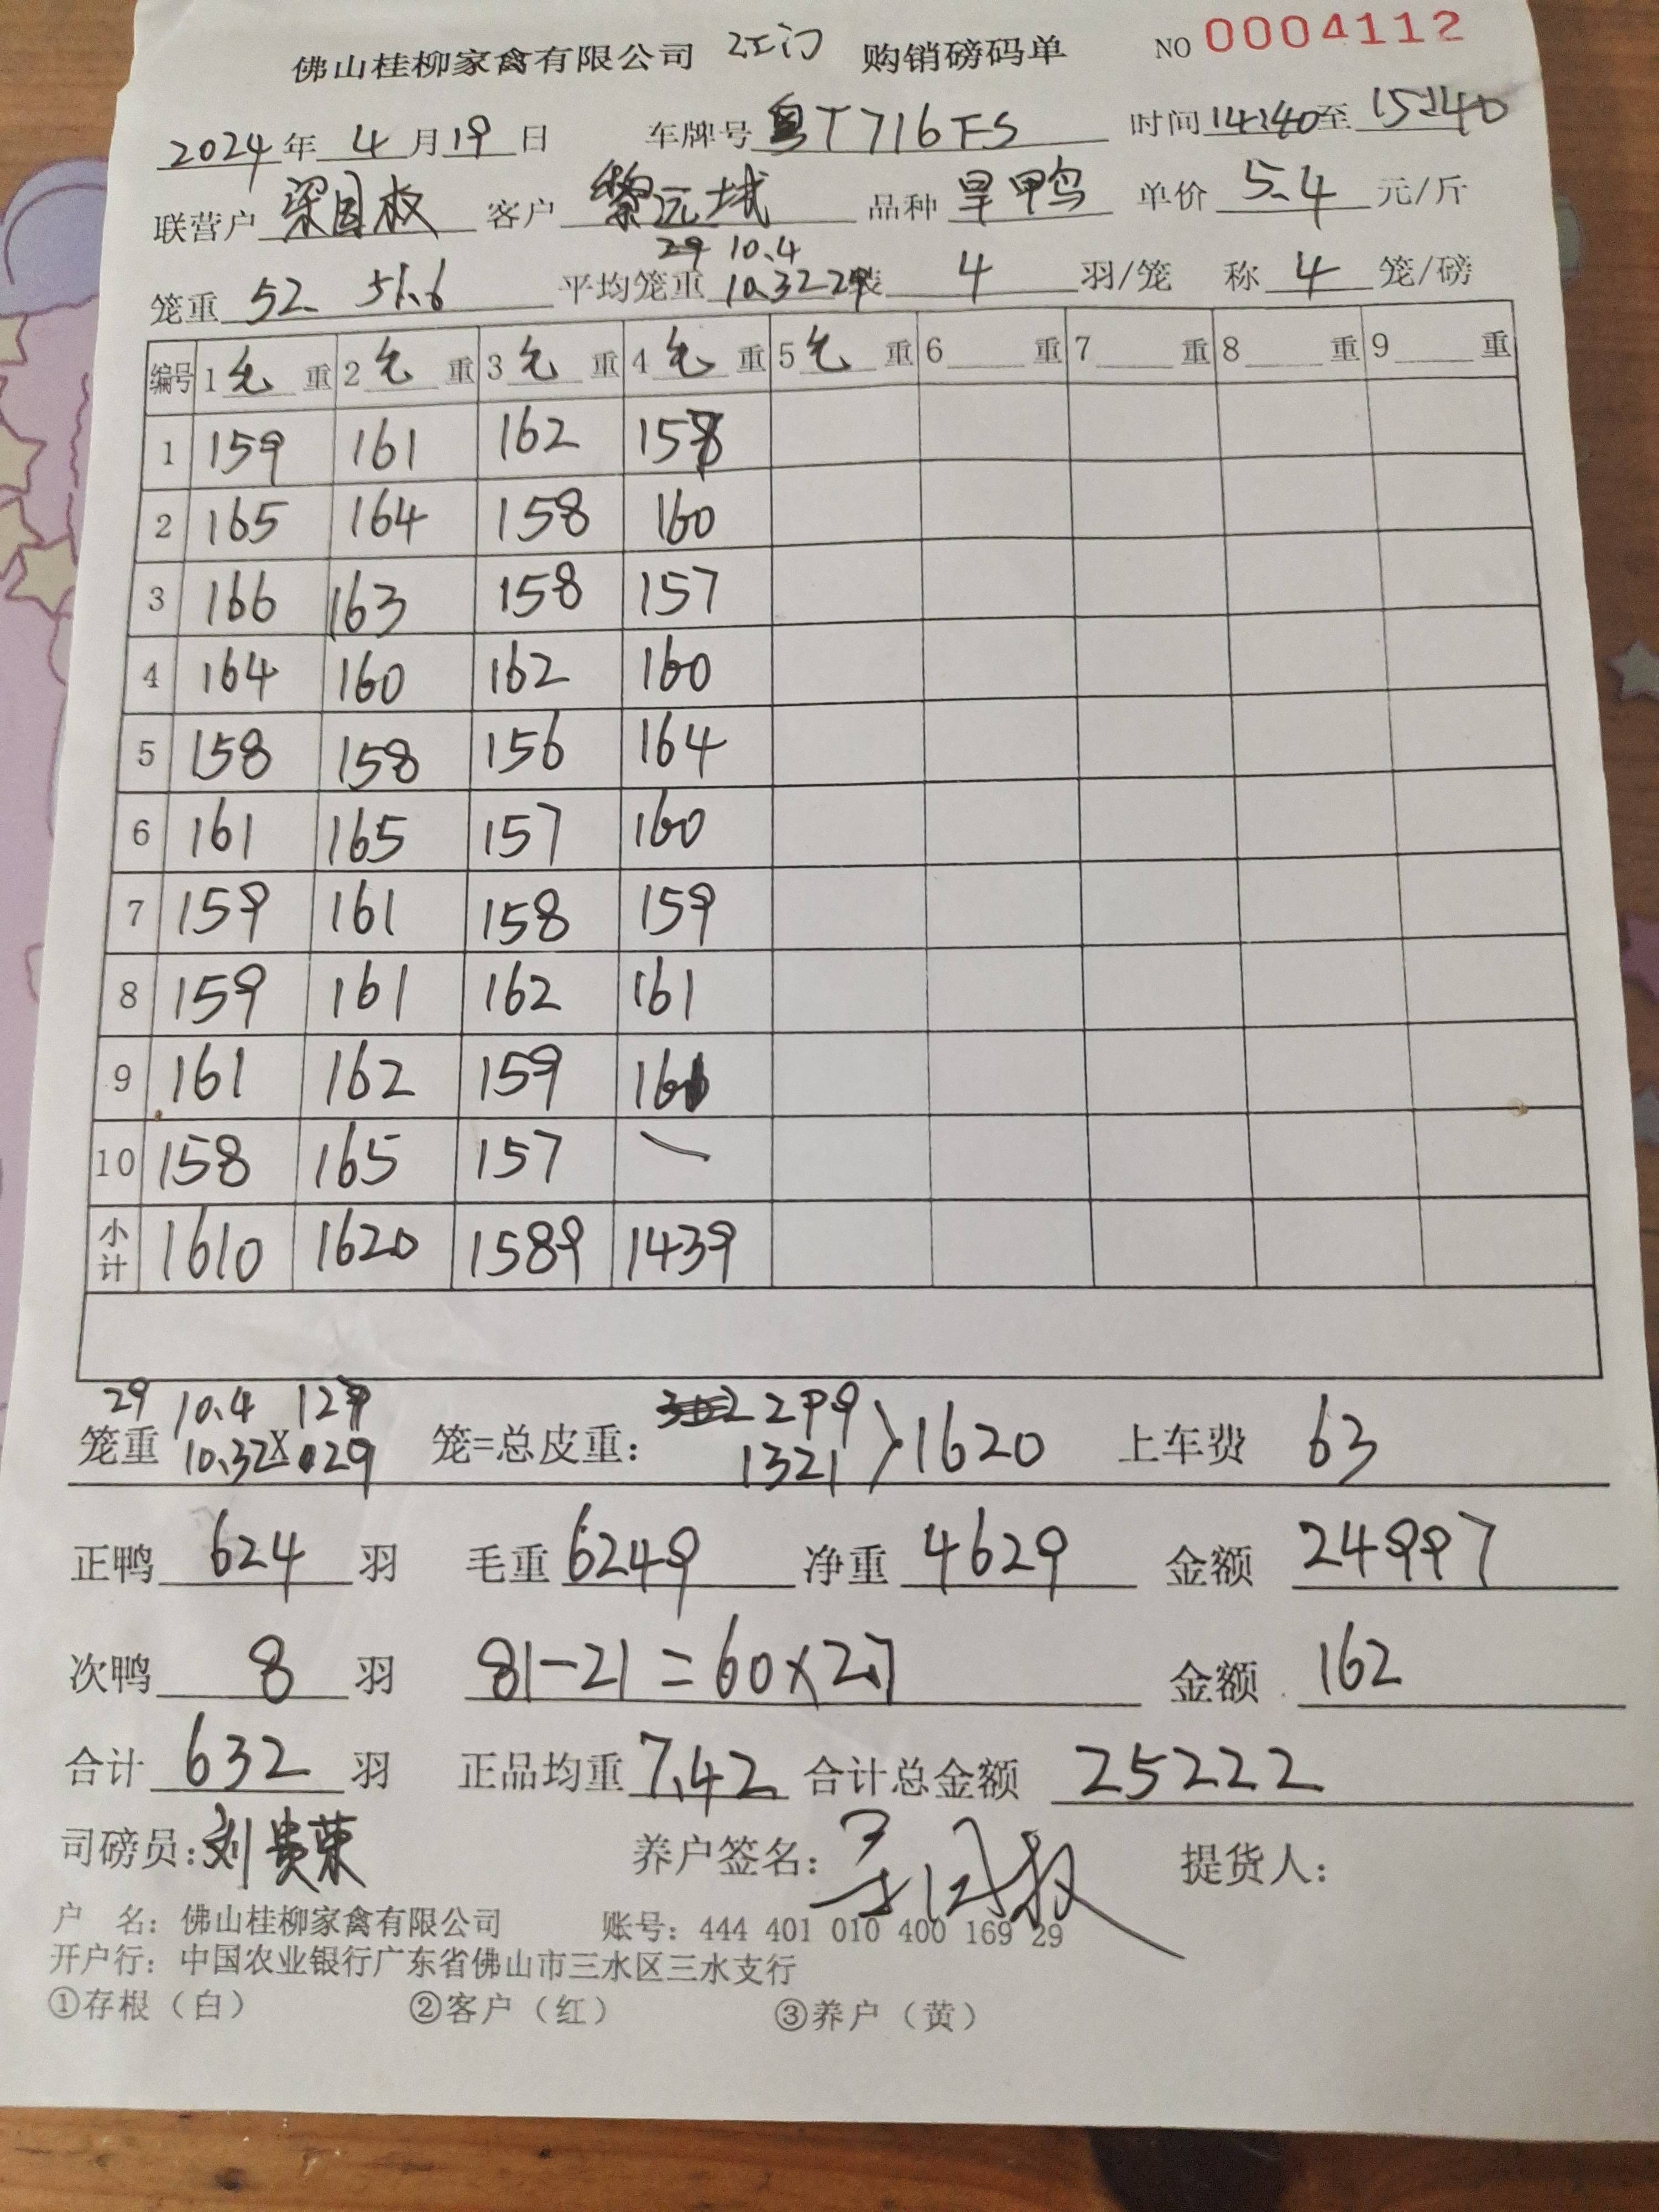 佛山桂柳家禽有限公司 江门 购销磅码单 NO 0004112
2024年 4月19日 车牌号 粤T716FS 时间 14:40至 15:40
联营户 梁国权 客户 黎沅城 品种 旱鸭 单价 5.4 元/斤
29 10.4
笼重 52 51.6 平均笼重 10.32 29 装 4 羽/笼 称 4 笼/磅
编号 1 毛 重 2 毛 重 3 毛 重 4 毛 重 5 毛 重 6 重 7 重 8 重 9 重
1 159 161 162 158
2 165 164 158 160
3 166 163 158 157
4 164 160 162 160
5 158 158 156 164
6 161 165 157 160
7 159 161 158 159
8 159 161 162 161
9 161 162 159
10 158 165 157 \
小计 1610 1620 1589 1439
29 10.4 127 299
笼重 10.32X 029 笼=总皮重: 1321 〉1620 上车费 63
正鸭 624 羽 毛重 6249 净重 4629 金额 24997
次鸭 8 羽 81-21=60×2.7 金额 162
合计 632 羽 正品均重 7.42 合计总金额 25222
司磅员: 刘贵荣 养户签名: 提货人:
户 名: 佛山桂柳家禽有限公司 账号: 444 401 010 400 169 29
开户行: 中国农业银行广东省佛山市三水区三水支行
①存根（白） ②客户（红） ③养户（黄）